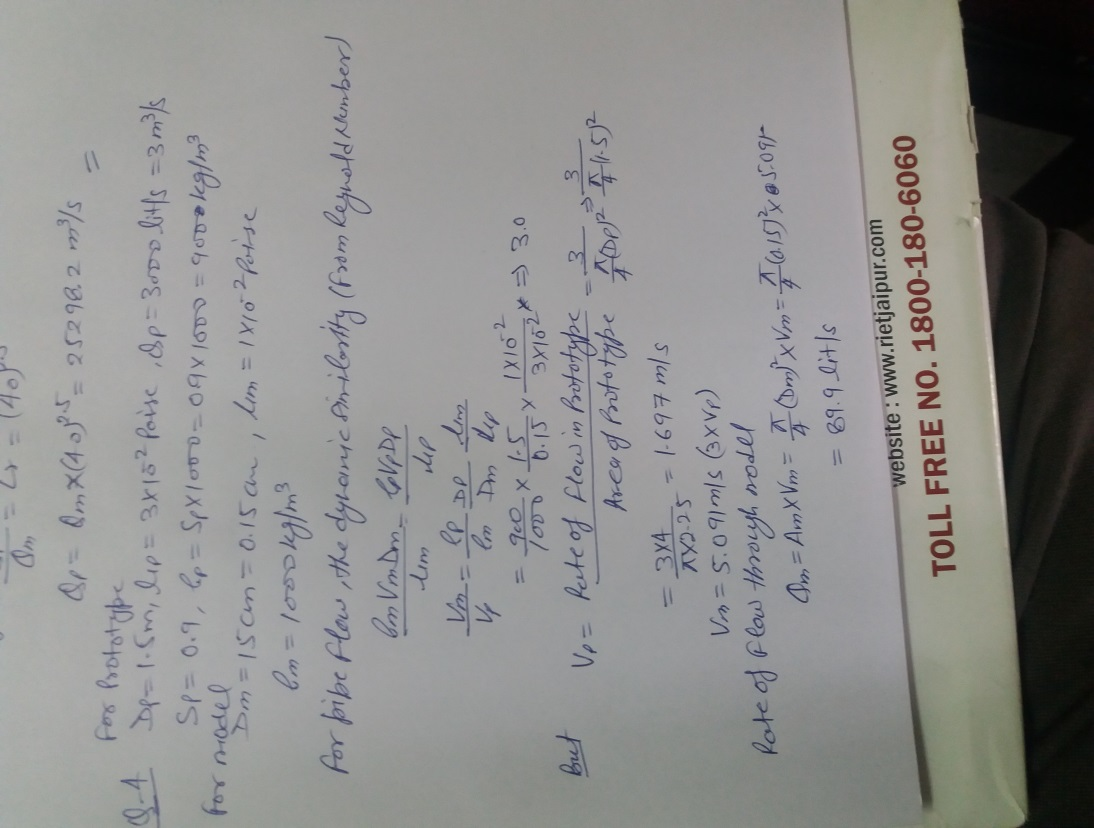 Qm = Lr = (40)^2.5
Qp = Qm×(40)^2.5 = 25298.2 m³/s =
Q-4 For Prototype
Dp = 1.5m, μp = 3×10⁻² Poise, Qp = 3000 lit/s = 3 m³/s
Sp = 0.9, ρp = Sp×1000 = 0.9×1000 = 900 kg/m³
For model
Dm = 15cm = 0.15cm, μm = 1×10⁻² Poise
ρm = 1000 kg/m³
For pipe flow, the dynamic similarity (from Reynold Number)
ρmVmDm/μm = ρVpDp/μp
Vm/Vp = ρp/ρm Dp/Dm μm/μp
= 900/1000 × 1.5/0.15 × 1×10⁻²/3×10⁻² ⇒ 3.0
But Vp = Rate of flow in Prototype/Area of Prototype = 3/π/4(Dp)² ⇒ 3/π/4(1.5)²
= 3×4/π×2.25 = 1.697 m/s
Vm = 5.091 m/s (3×Vp)
Rate of flow through model
Qm = Am×Vm = π/4(Dm)²×Vm = π/4(0.15)²×5.091
= 89.9 lit/s
website : www.rietjaipur.com
TOLL FREE NO. 1800-180-6060